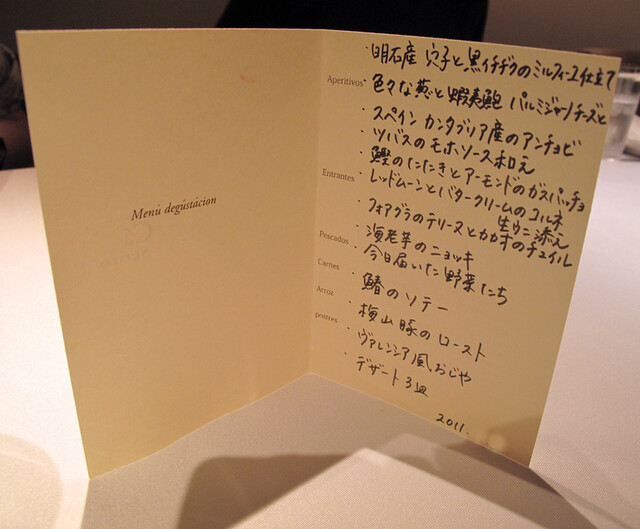 Menú degustacion
・明石産 穴子と黒イチヂクのミルフィーユ仕立て
Aperitivos
・色々な葱と蝦夷鮑 パルミジャーノチーズと
・スペイン カンタブリア産のアンチョビ
・ツバスのモホソース和え
・鰹のたたきとアーモンドのガスパッチョ
Entrantes
・レッドムーンとバタークリームのコルネ
生ウニ添え
・フォアグラのテリーヌとカカオのチュイル
Pescados
・海老芋のニョッキ
・今日届いた野菜たち
Carnes
・鰆のソテー
Arroz
・梅山豚のロースト
postres
・ヴァレンシア風おじや
・デザート3皿
2011.